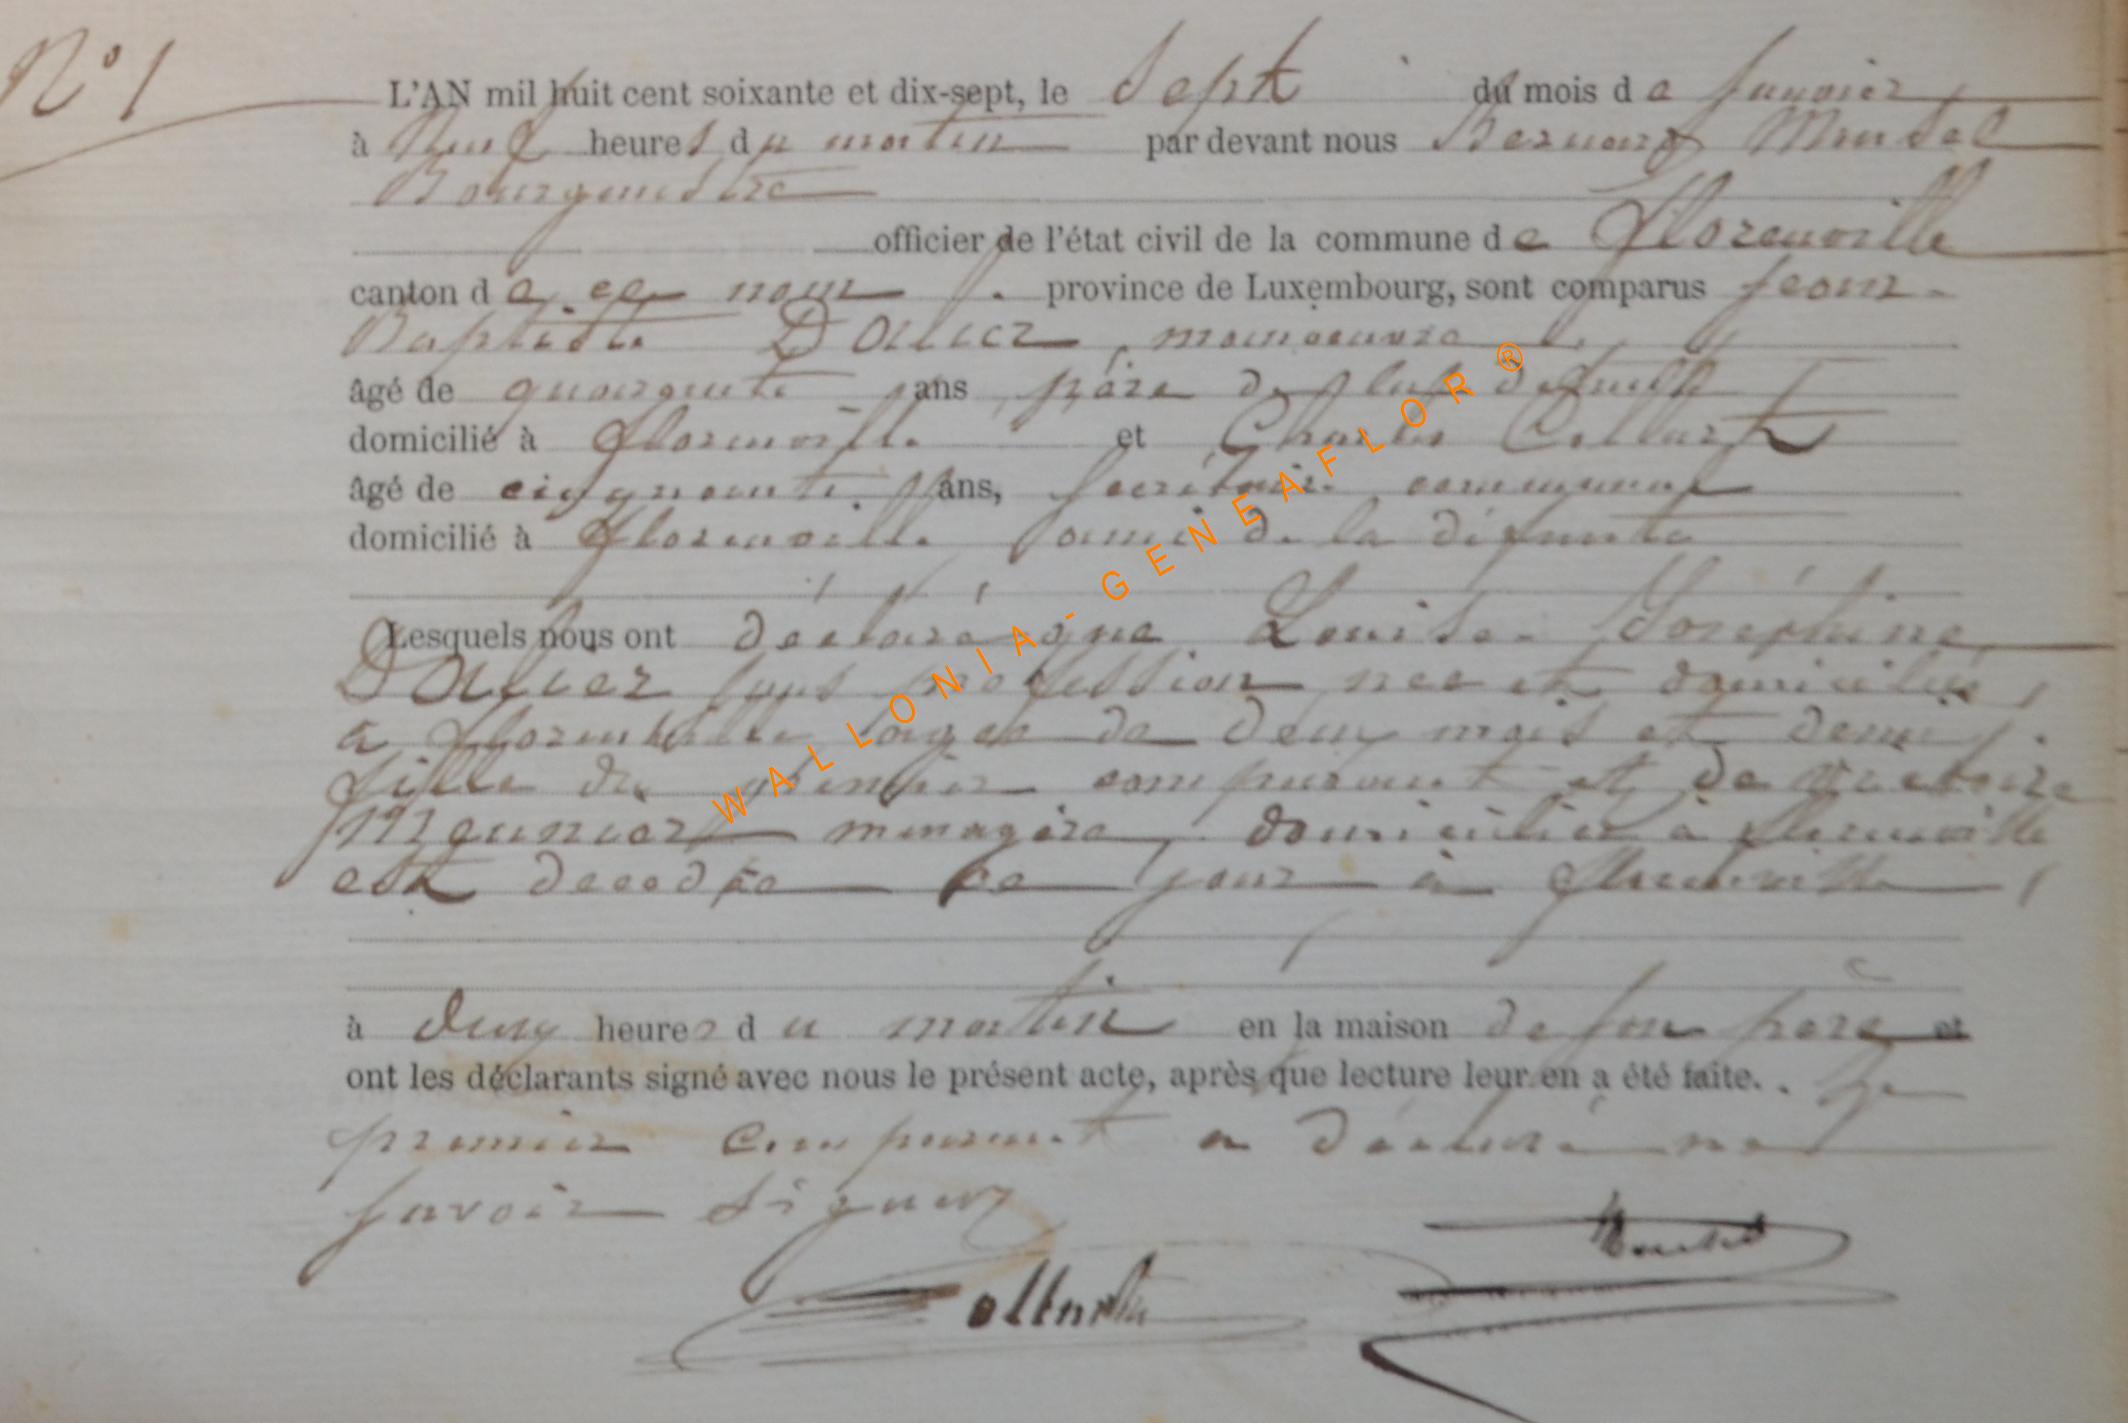 N° 1
L'AN mil huit cent soixante et dix-sept, le Sept du mois de Janvier
à Neuf heures du matin par devant nous Bernard
Bourgmestre
officier de l'état civil de la commune de Florenville
canton de ce nom province de Luxembourg, sont comparus Jean-
Baptiste manoeuvre
âgé de quarante ans père de la
domicilié à Florenville et Charles Collart
âgé de cinquante ans, Secrétaire communal
domicilié à Florenville ami de la défunte
Lesquels nous ont déclaré que Louise-Joséphine
sans profession née et domiciliée
à Florenville âgée de deux mois et demi,
fille du premier comparant et de Victoire
Meunier ménagère, domiciliée à Florenville
est décédée ce jour à Florenville,
à deux heures du matin en la maison de son père et
ont les déclarants signé avec nous le présent acte, après que lecture leur en a été faite. Le
premier comparant a déclaré ne
savoir signer
WALLONIA-GENEAFLOR®